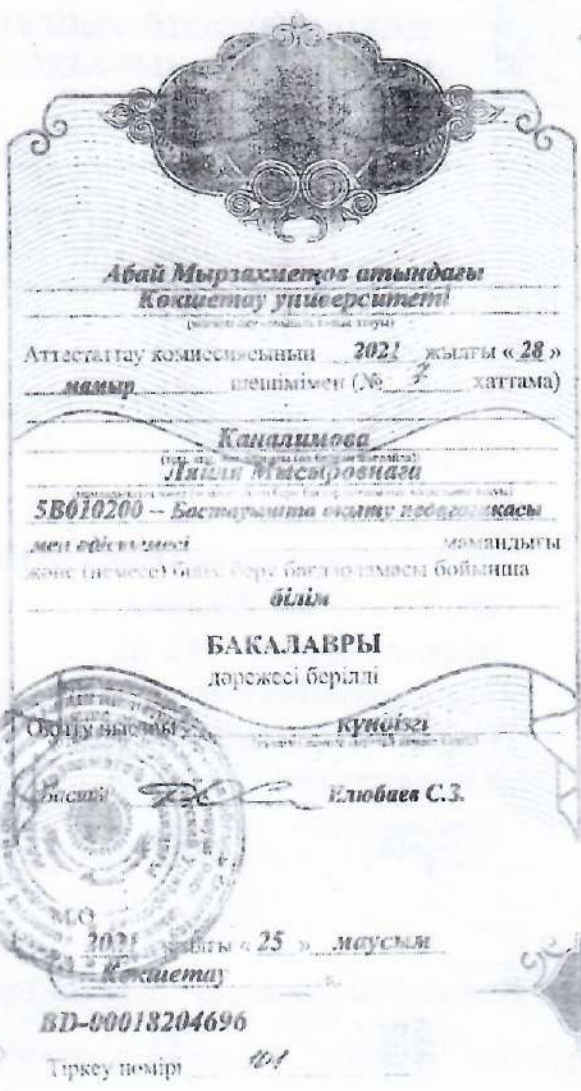 Абай Мырзахметов атындағы
Көкшетау университеті
Аттестаттау комиссиясының 2021 жылғы « 28 »
мамыр шешімімен (№ 7 хаттама)
Каналимова
Ляйля Мысыровнаға
5В010200 – Бастауышта оқыту педагогикасы
мен әдістемесі мамандығы
және (немесе) білім беру бағдарламасы бойынша
білім
БАКАЛАВРЫ
дәрежесі берілді
Оқыту нысаны күндізгі
Басшы Елюбаев С.З.
М.О
2021 жылғы « 25 » маусым
Көкшетау қ.
BD-00018204696
Тіркеу нөмірі